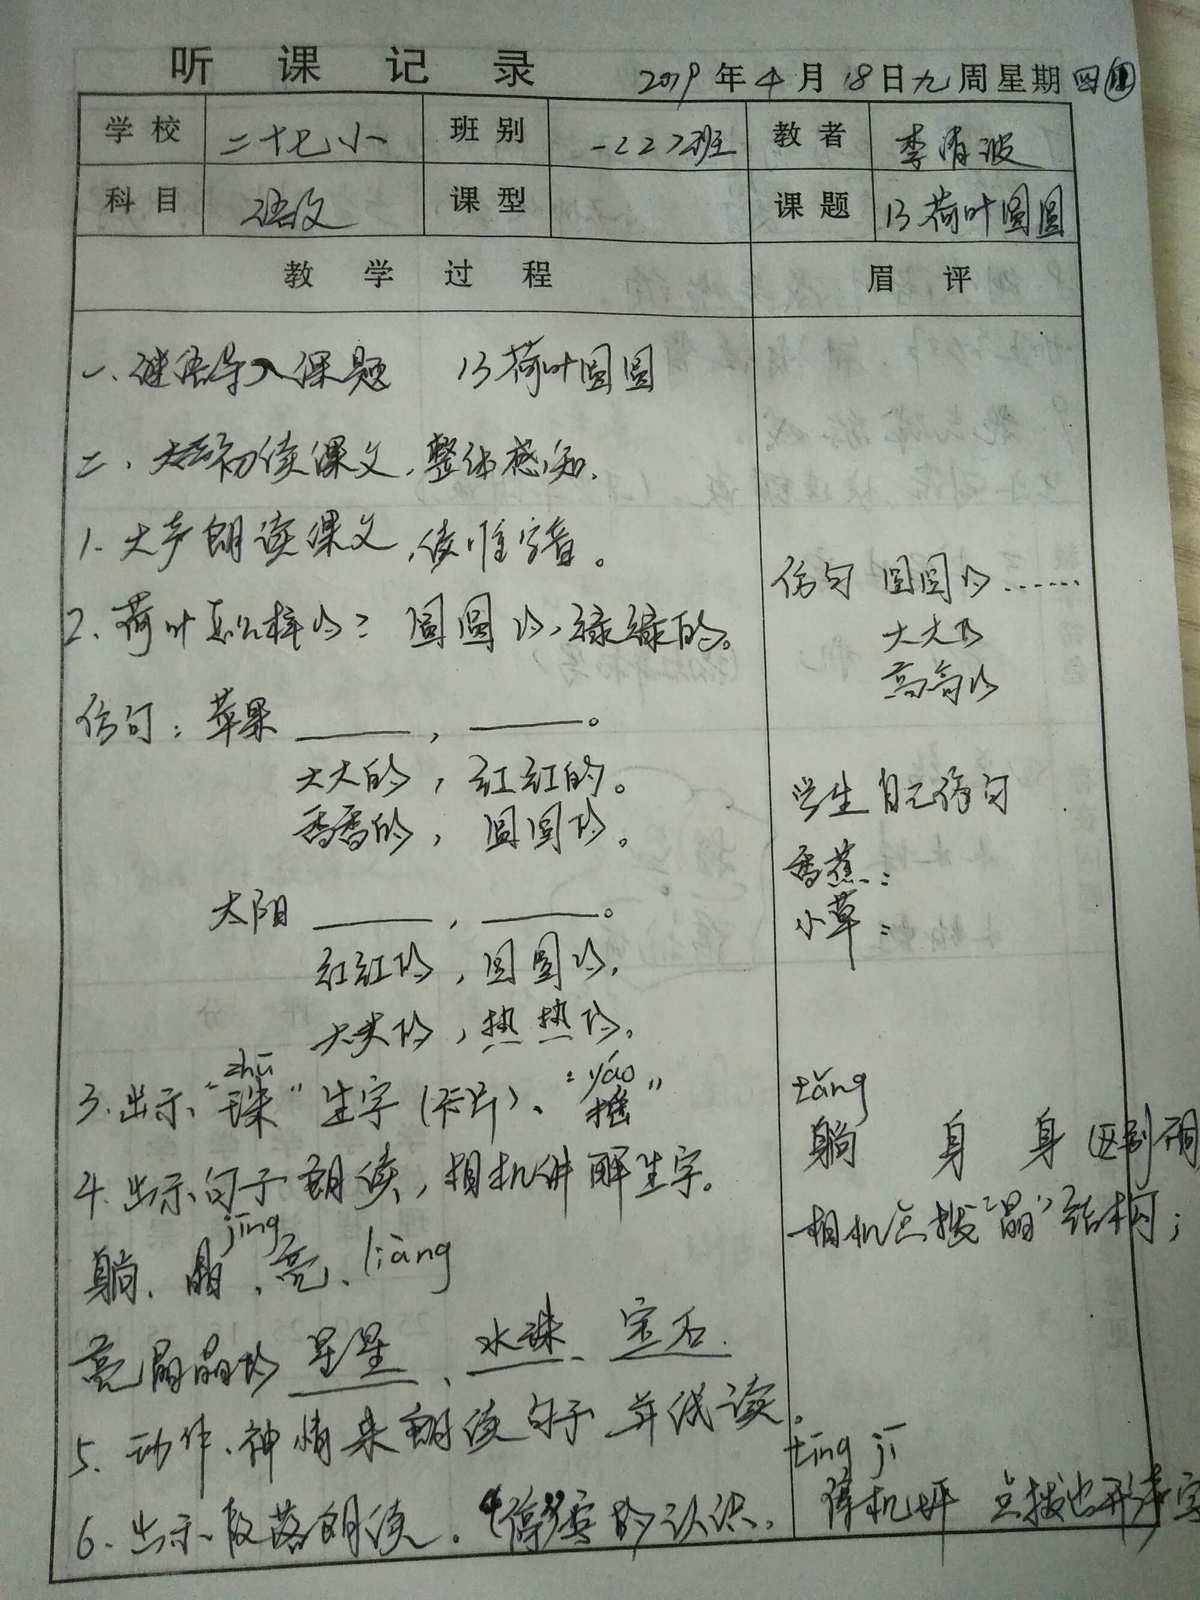 听课记录 2019年4月18日九周星期四
学校 二十七小 班别 一227班 教者 李清波
科目 语文 课型 课题 13荷叶圆圆
教学过程 眉评
一、谜语导入课题 13荷叶圆圆
二、初读课文,整体感知.
1.大声朗读课文,读准字音。
2.荷叶怎么样的? 圆圆的,绿绿的。
仿句 圆圆的……
大大的
高高的
仿句:苹果______,______。
大大的,红红的。
香香的,圆圆的。
学生自己仿句
香蕉:
小草:
太阳______,______。
红红的,圆圆的.
大大的,热热的.
zhū yáo
3.出示"珠"生字(卡片)、"摇"
4.出示句子朗读,相机讲解生字。
jīng
躺、晶、亮、liàng
亮晶晶的 星星、水珠、宝石.
5.动作、神情来朗读句子 读。
6.出示段落朗读. "停" 的认识.
tǎng
躺 身 身 区别
相机点拨"晶"结构;
tíng jī
停机坪 点拨出形声字